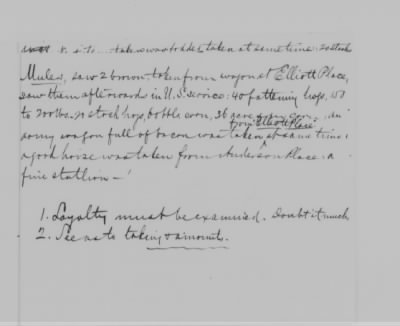 taken at same time: 20 stock
Mules, saw 2 brown taken from wagon at Elliott Place,
saw them afterwards in U.S. service: 40 fattening hogs, 150
to 200 lbs. 20 stock hogs, 600 bbls corn, 36 acre
from Elliott Place
army wagon full of bacon was taken at same time:
a good horse was taken from Anderson Place: a
fine stallion —
1. Loyalty must be examined. Doubt it much
2. See as to taking & amount.